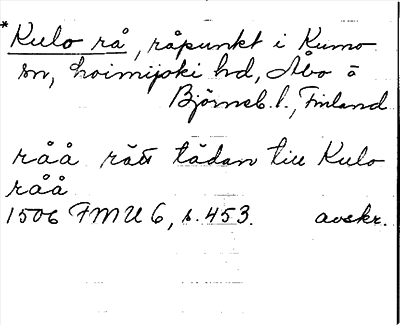 *Kulo rå, råpunkt i Kumo
sn, Loimijoki hd, Åbo o
Björneb. l., Finland
råå rätt tädan till Kulo
råå
1506 FMU 6, s. 453. avskr.